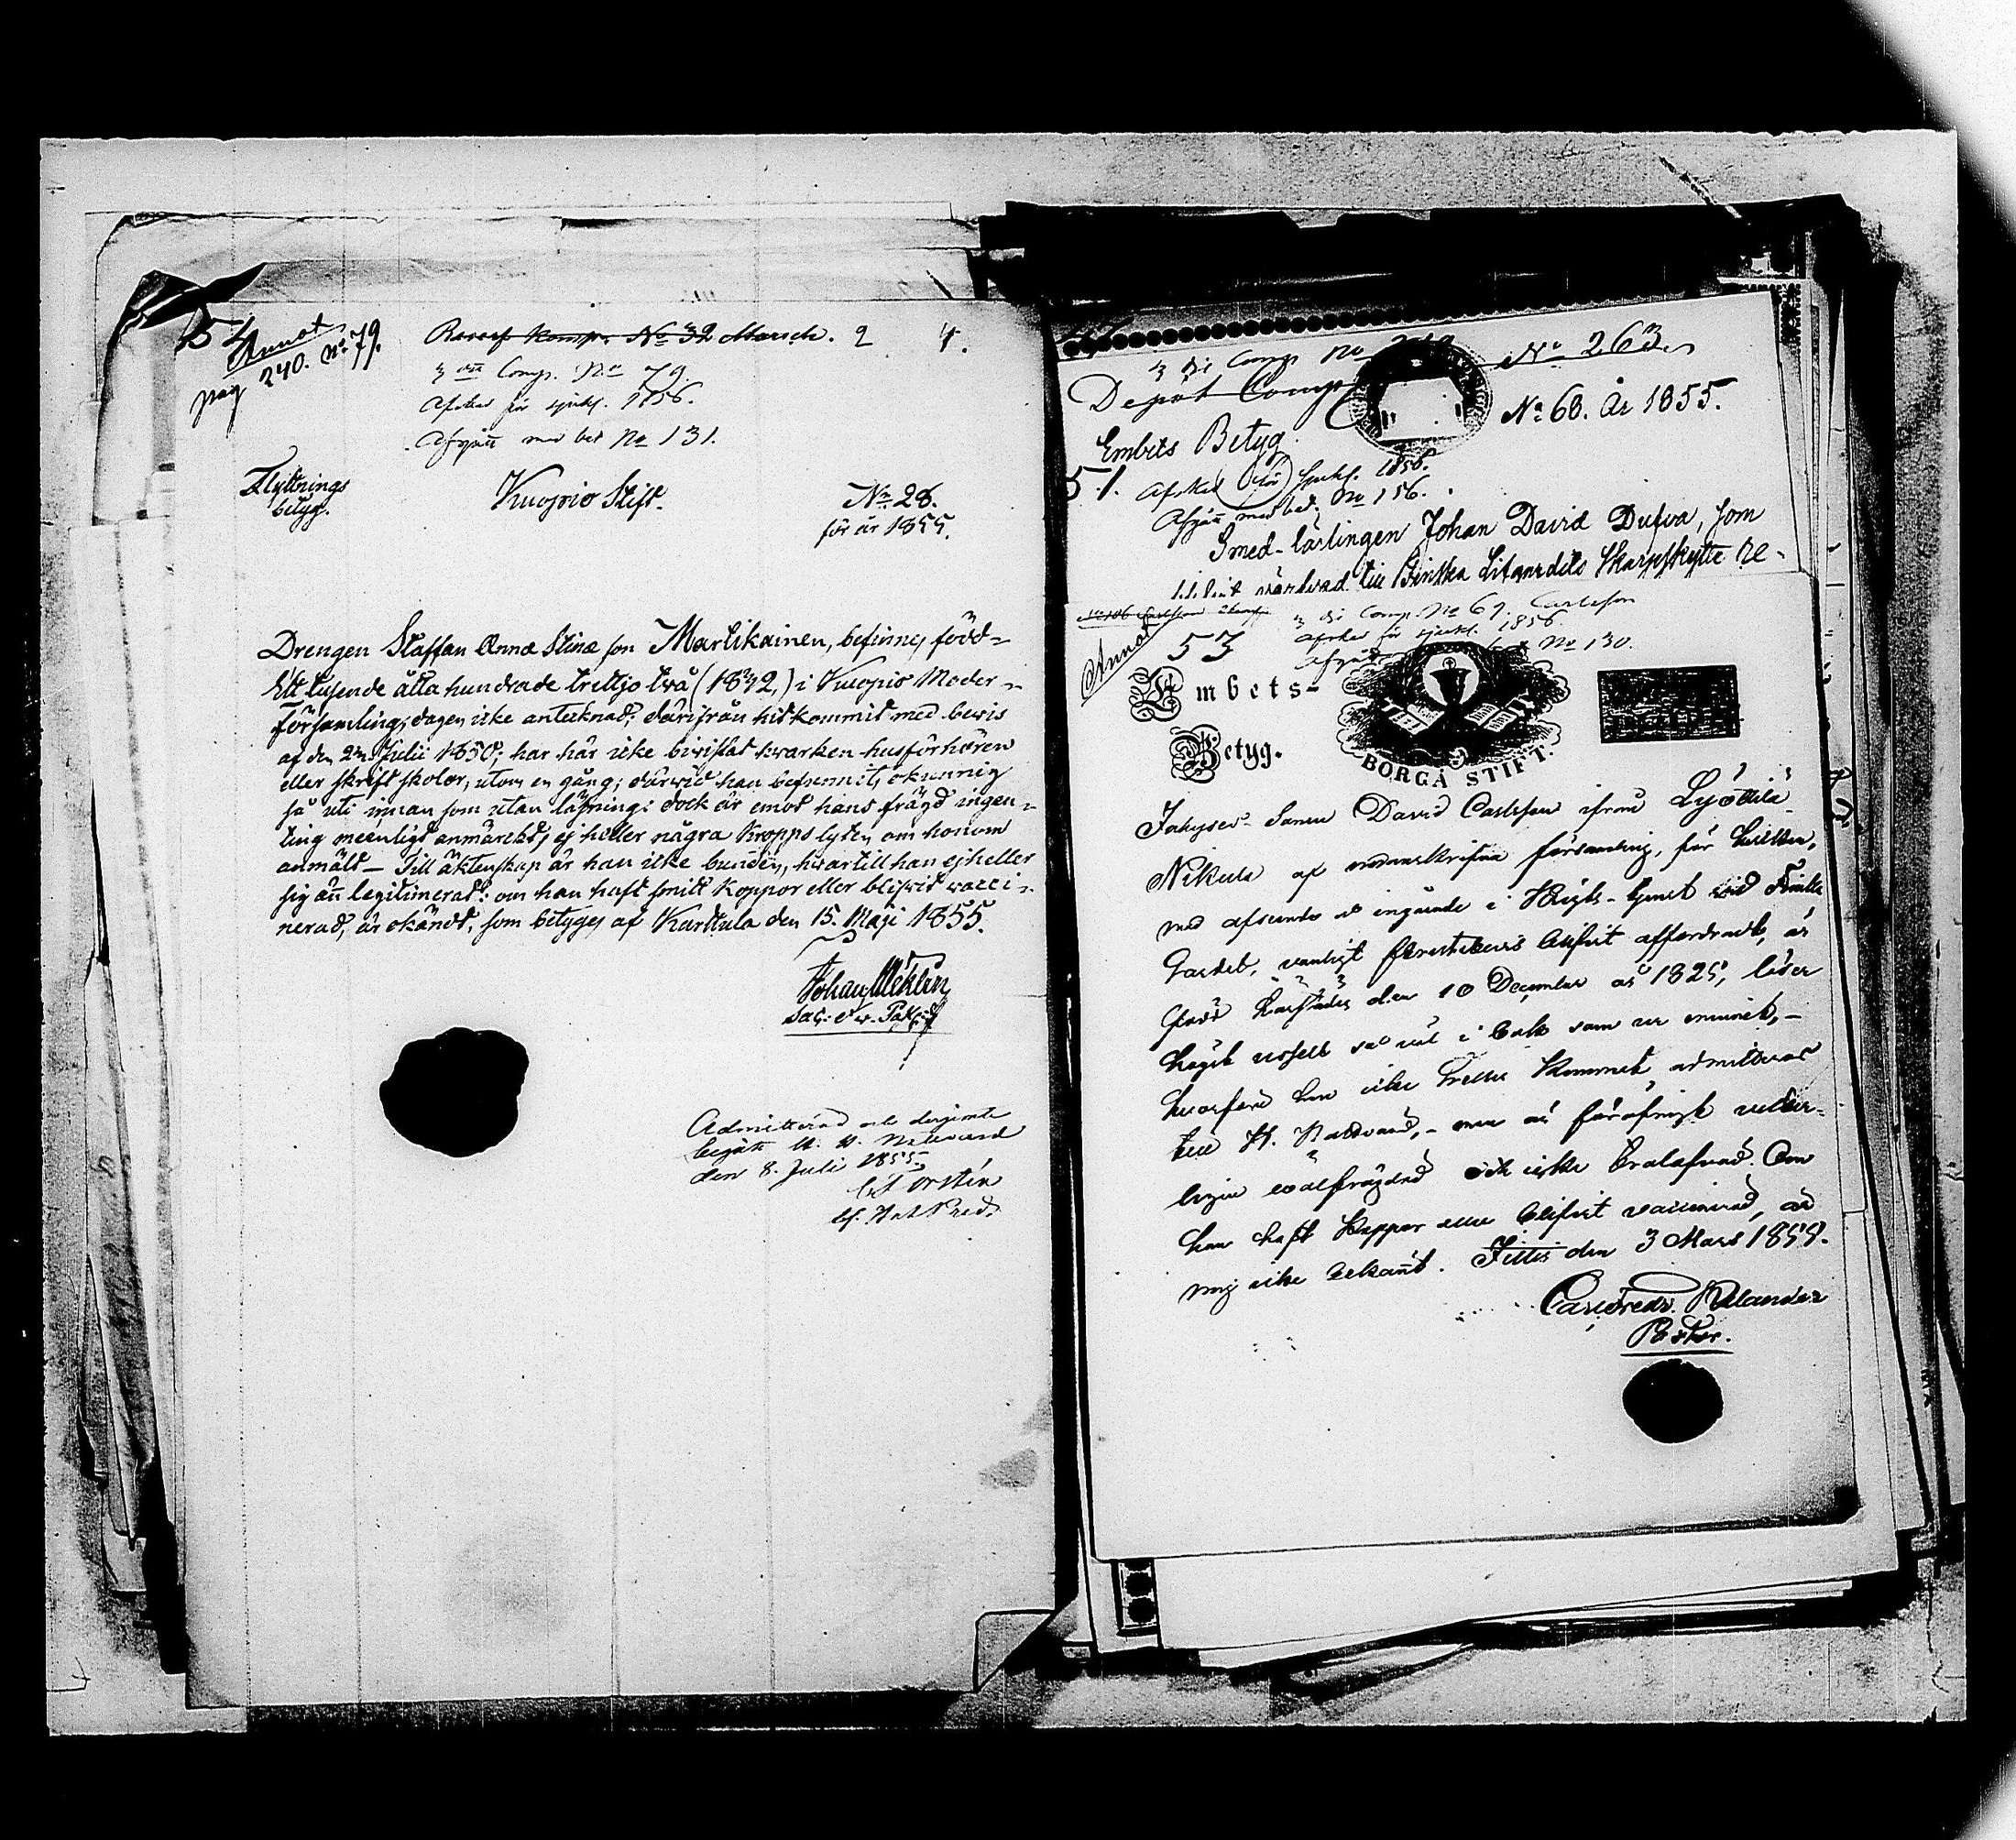 54
Annot
pag 240. No 79.
Reserf Komp. No 32 Marsch. 2 4.
3 die Comp. No 79.
Afsked för sjukl. 1856.
Afgått med bet No 131.
Flyttnings
betyg.
Kuopio Stift.
No 28.
för år 1855.
Drengen Staffan Anna Stina son Martikainen, befinnes född
Ett tusende åtta hundrade trettjo två (1832,) i Kuopio Moder-
församling, dagen icke antecknad; därifrån hitkommit med bevis
af den 22 Julii 1850; har här icke bivistat hvarken husförhören
eller skriftskolor, utom en gång; därvid han befunnits okunnig
så uti innan som utan läsning: dock är emot hans frägd ingen-
ting menligt anmärkt, ej heller några Kropps lyten om honom
anmält - Till äktenskap är han icke bunden, hvartill han ej heller
sig än legitimerat: om han haft smitt Koppor eller blifvit vacci-
nerad, är okändt, som betyges af Karttula den 15. Maji 1855.
Johan Meklin
Sac: o v. Past:
Admitterad och derjemte
begått H. H. Nattvard
den 8. Juli 1855
3 die Comp No
Depot Comp
No 263
No 68. År 1855.
Embets Betyg
51.
Afsked för sjukl. 1856.
Afgått med bet. No 156.
Smed-lärlingen Johan David Dufva, som
blifvit värfvad till Finska Lifgardets Skarpskytte Re-
3 die Comp. No 67. Carlsson
Afsked för sjukl. 1856.
No 130.
Annot
53
Embets-
Betyg.
BORGÅ STIFT.
Sonen David Carlsson ifrån Lyöttilä
Nikula af undanskrifna församling, för hvilken,
med afseende å ingående i Krigs-tjenst vid Finska
Gardet, vanligt Prestebevis blifvit affordradt, är
född den 10 December år 1825, läser
högst uselt så väl i bok som ur minnet,-
hvarföre han icke heller kunnat admitteras
till H. Nattvard,- men är föröfrigt
välfrägdad och icke trolofvad. Om
han haft Koppor eller blifvit vaccinerad, är
mig icke bekant. Jittis den 3 Mars 1855.
Past: